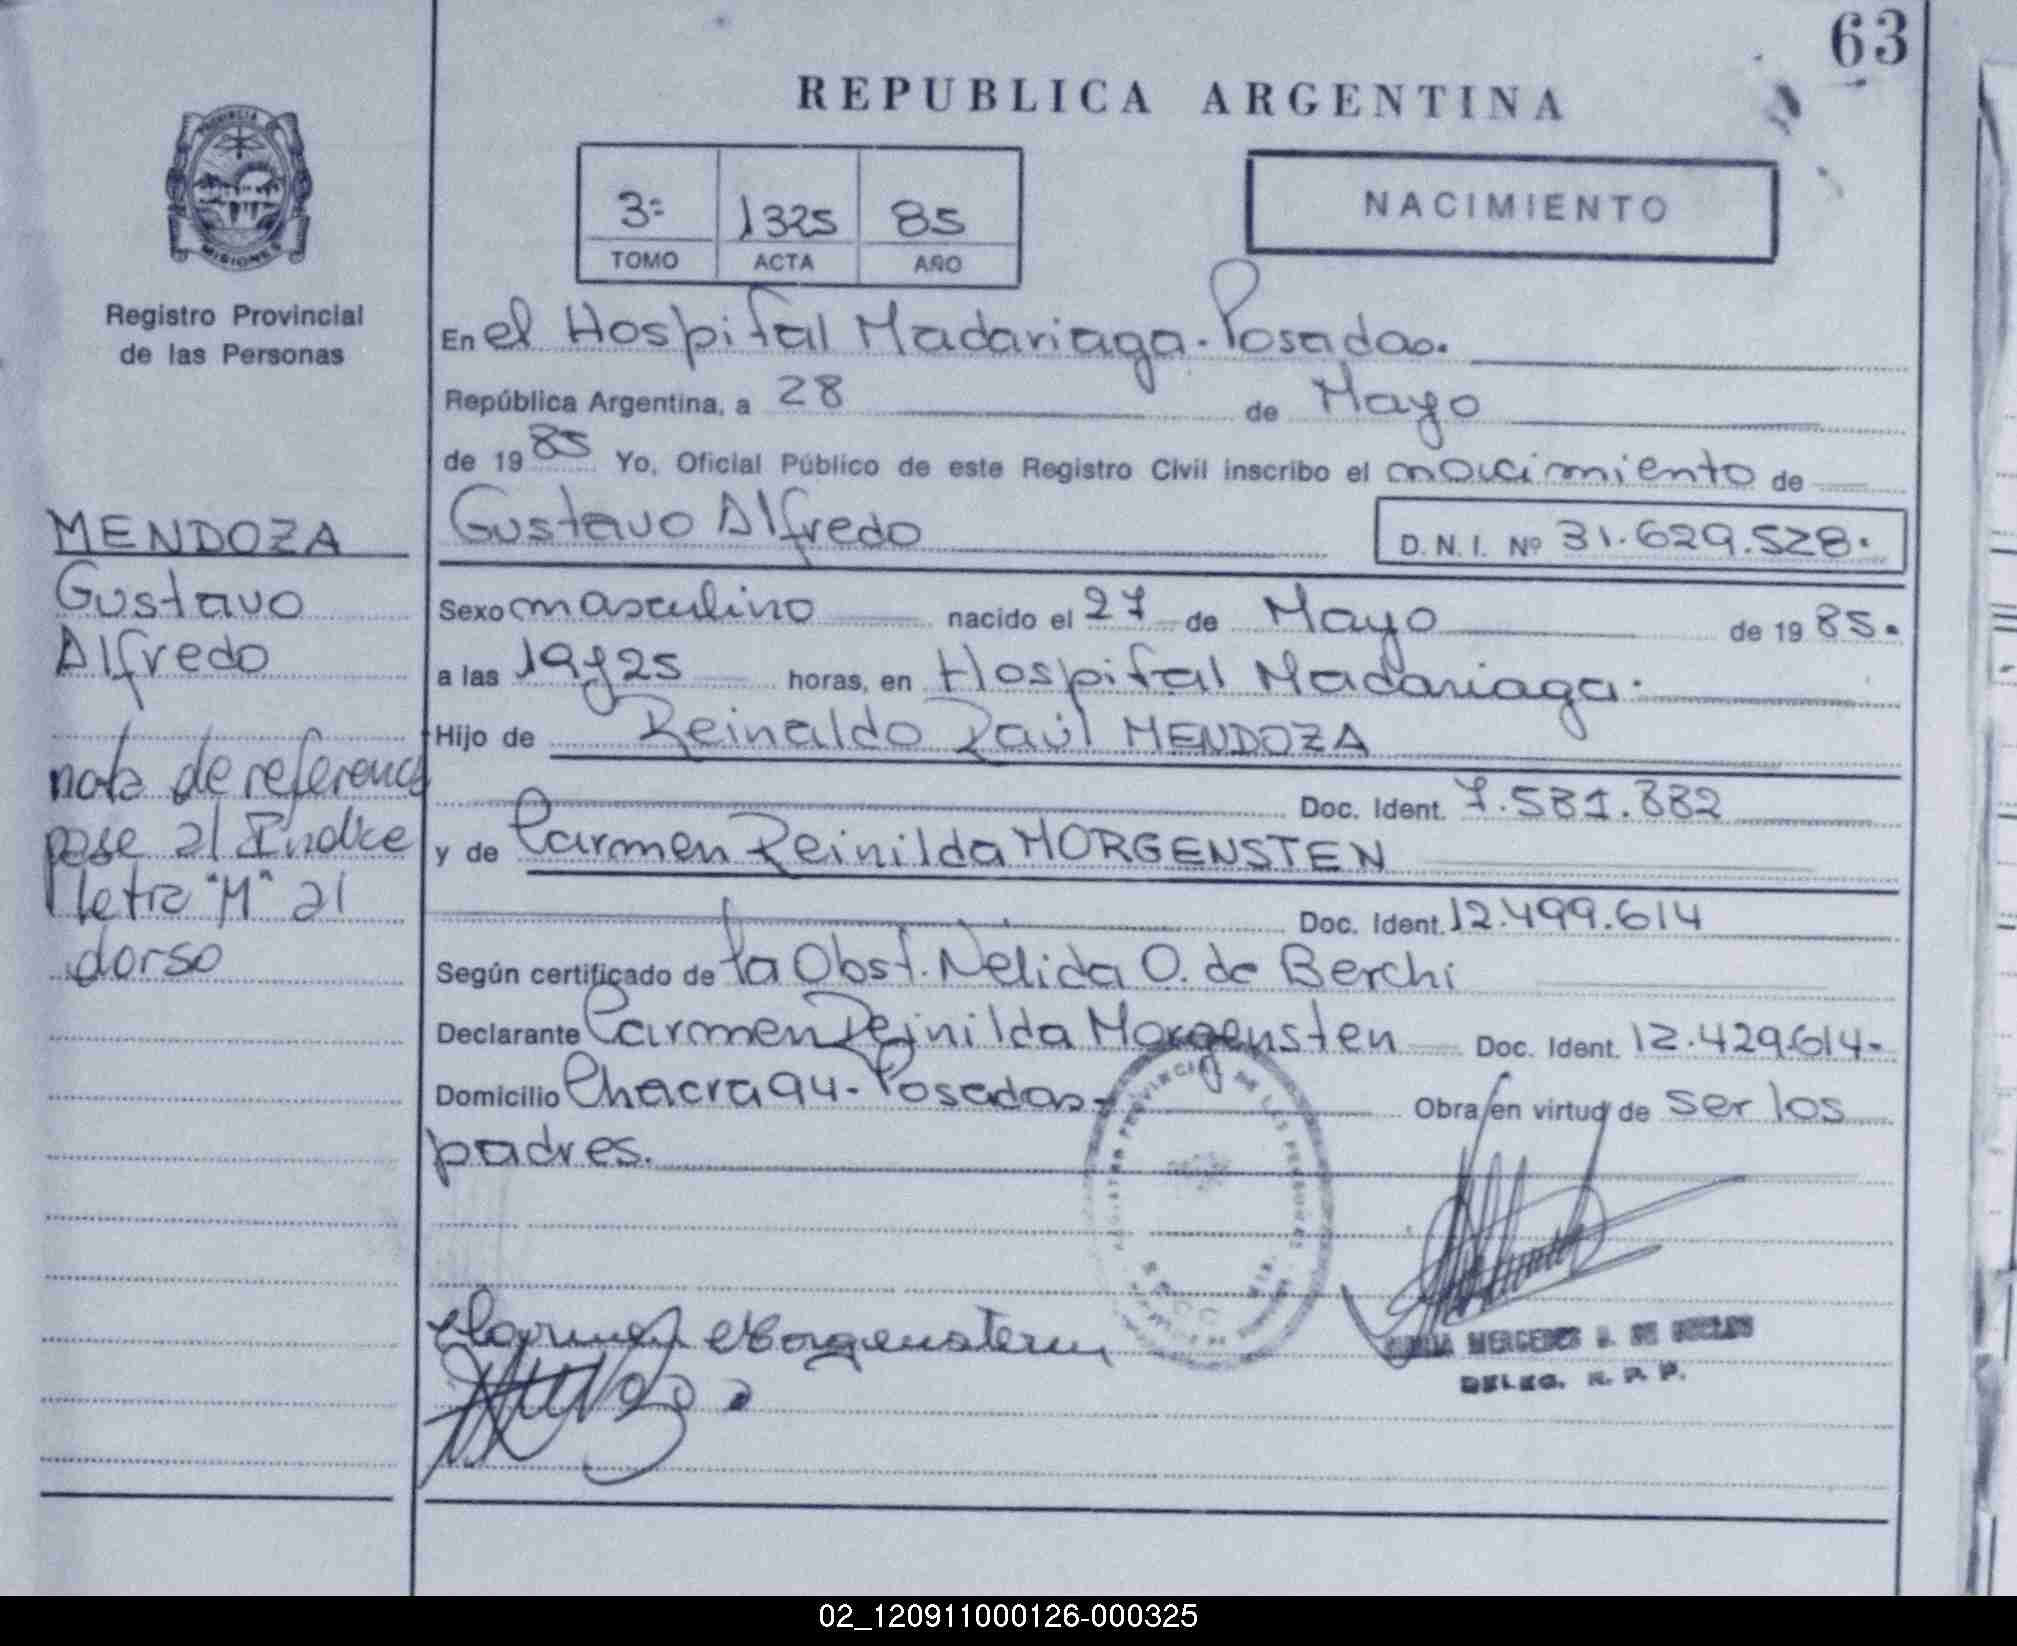 63
REPUBLICA ARGENTINA
3º 1325 85
TOMO ACTA AÑO
NACIMIENTO
PROVINCIA DE
MISIONES
Registro Provincial
de las Personas
MENDOZA
Gustavo
Alfredo
nota de referencia
pase al Indice
letra "M" al
dorso
En el Hospital Madariaga. Posadas.
República Argentina, a 28 de Mayo
de 1985 Yo, Oficial Público de este Registro Civil inscribo el nacimiento de
Gustavo Alfredo D.N.I. Nº 31.629.528.
Sexo masculino nacido el 27 de Mayo de 1985.
a las 19y25 horas, en Hospital Madariaga.
Hijo de Reinaldo Raúl MENDOZA
Doc. Ident. 7.581.332
y de Carmen Reinilda MORGENSTEN
Doc. Ident. 12.499.614
Según certificado de la Obst. Nelida O. de Berchi
Declarante Carmen Reinilda Morgensten Doc. Ident. 12.429.614-
Domicilio Chacra 94- Posadas- Obra en virtud de ser los
padres.
REGISTRO PROVINCIAL DE LAS PERSONAS
Carmen Morgenstern
MERCEDES
DELEG. R. P. P.
02_120911000126-000325